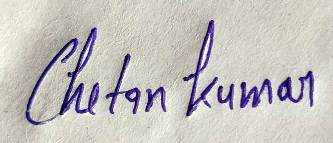 Chetan kumar